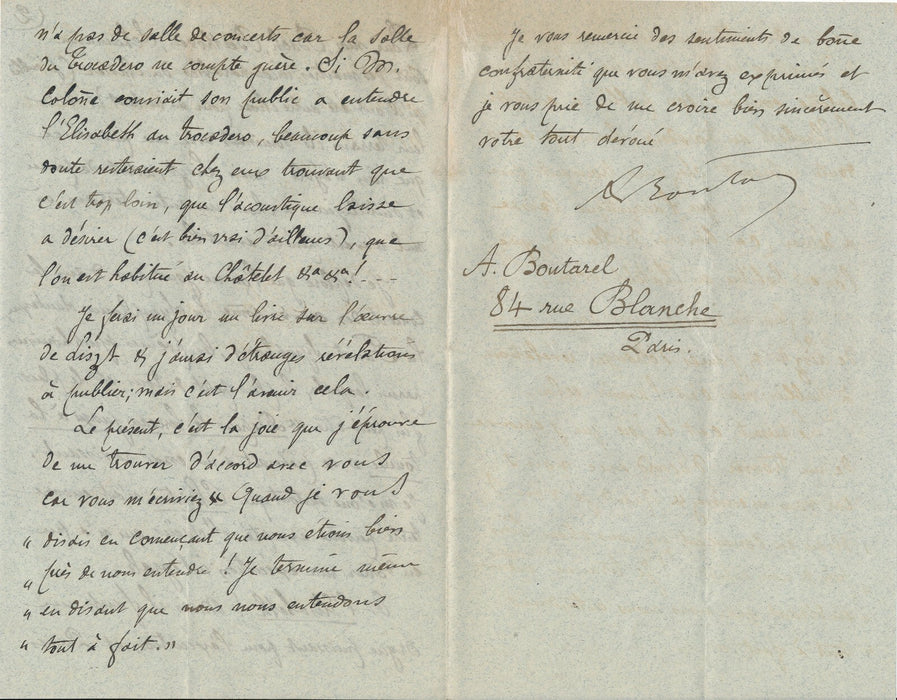 n'a pas de salle de concerts car la salle
du Trocadero ne compte guère. Si M.
Colon̄e conviait son public a entendre
l'Elisabeth au trocadero, beaucoup sans
doute resteraient chez eux trouvant que
c'est trop loin, que l'acoustique laisse
a désirer (c'est bien vrai d'ailleurs), que
l'on est habitué au Châtelet &a &a!....
Je ferai un jour un livre sur l'œuvre
de Liszt & j'aurai d'étranges révélations
à publier; mais c'est l'avenir cela.
Le présent, c'est la joie que j'éprouve
de me trouver d'accord avec vous
car vous m'écriviez « Quand je vous
" disais en com̄ençant que nous étions bien
" près de nous entendre! Je termine même
" en disant que nous nous entendons
" tout à fait."
Je vous remercie des sentiments de bon̄e
confraternité que vous m'avez exprimés et
je vous prie de me croire bien sincèrement
votre tout dévoué
A Boutarel
A. Boutarel
84 rue Blanche
Paris.